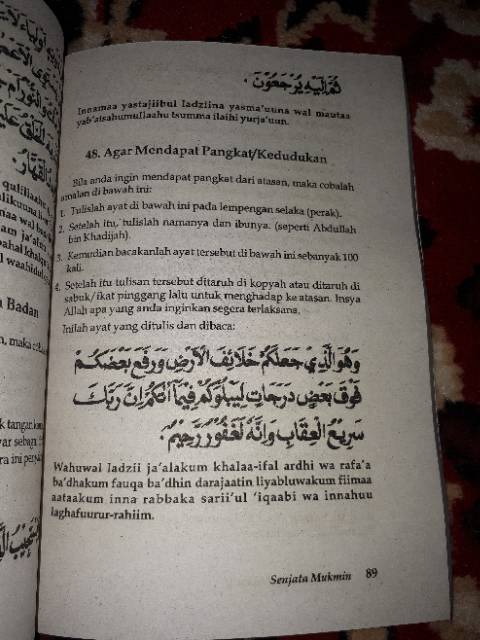 ثُمَّ اِلَيْهِ يُرْجَعُوْنَ ۰
Innamaa yastajiibul ladziina yasma'uuna wal mautaa
yab'atsahumullaahu tsumma ilaihi yurja'uun.
48. Agar Mendapat Pangkat/Kedudukan
Bila anda ingin mendapat pangkat dari atasan, maka cobalah
amalan di bawah ini:
1. Tulislah ayat di bawah ini pada lempengan selaka (perak).
2. Setelah itu, tulislah namanya dan ibunya. (seperti Abdullah
bin Khadijah).
3. Kemudian bacakanlah ayat tersebut di bawah ini sebanyak 100
kali.
4. Setelah itu tulisan tersebut ditaruh di kopyah atau ditaruh di
sabuk/ikat pinggang lalu untuk menghadap ke atasan. Insya
Allah apa yang anda inginkan segera terlaksana.
Inilah ayat yang ditulis dan dibaca:
وَهُوَ الَّذِيْ جَعَلَكُمْ خَلَائِفَ الْاَرْضِ وَرَفَعَ بَعْضَكُمْ
فَوْقَ بَعْضٍ دَرَجَاتٍ لِيَبْلُوَكُمْ فِيْمَآ اٰتٰكُمْ اِنَّ رَبَّكَ
سَرِيْعُ الْعِقَابِ وَاِنَّهُ لَغَفُوْرٌ رَّحِيْمٌ ۰
Wahuwal ladzii ja'alakum khalaa-ifal ardhi wa rafa'a
ba'dhakum fauqa ba'dhin darajaatin liyabluwakum fiimaa
aataakum inna rabbaka sarii'ul 'iqaabi wa innahuu
laghafuurur-rahiim.
Senjata Mukmin 89